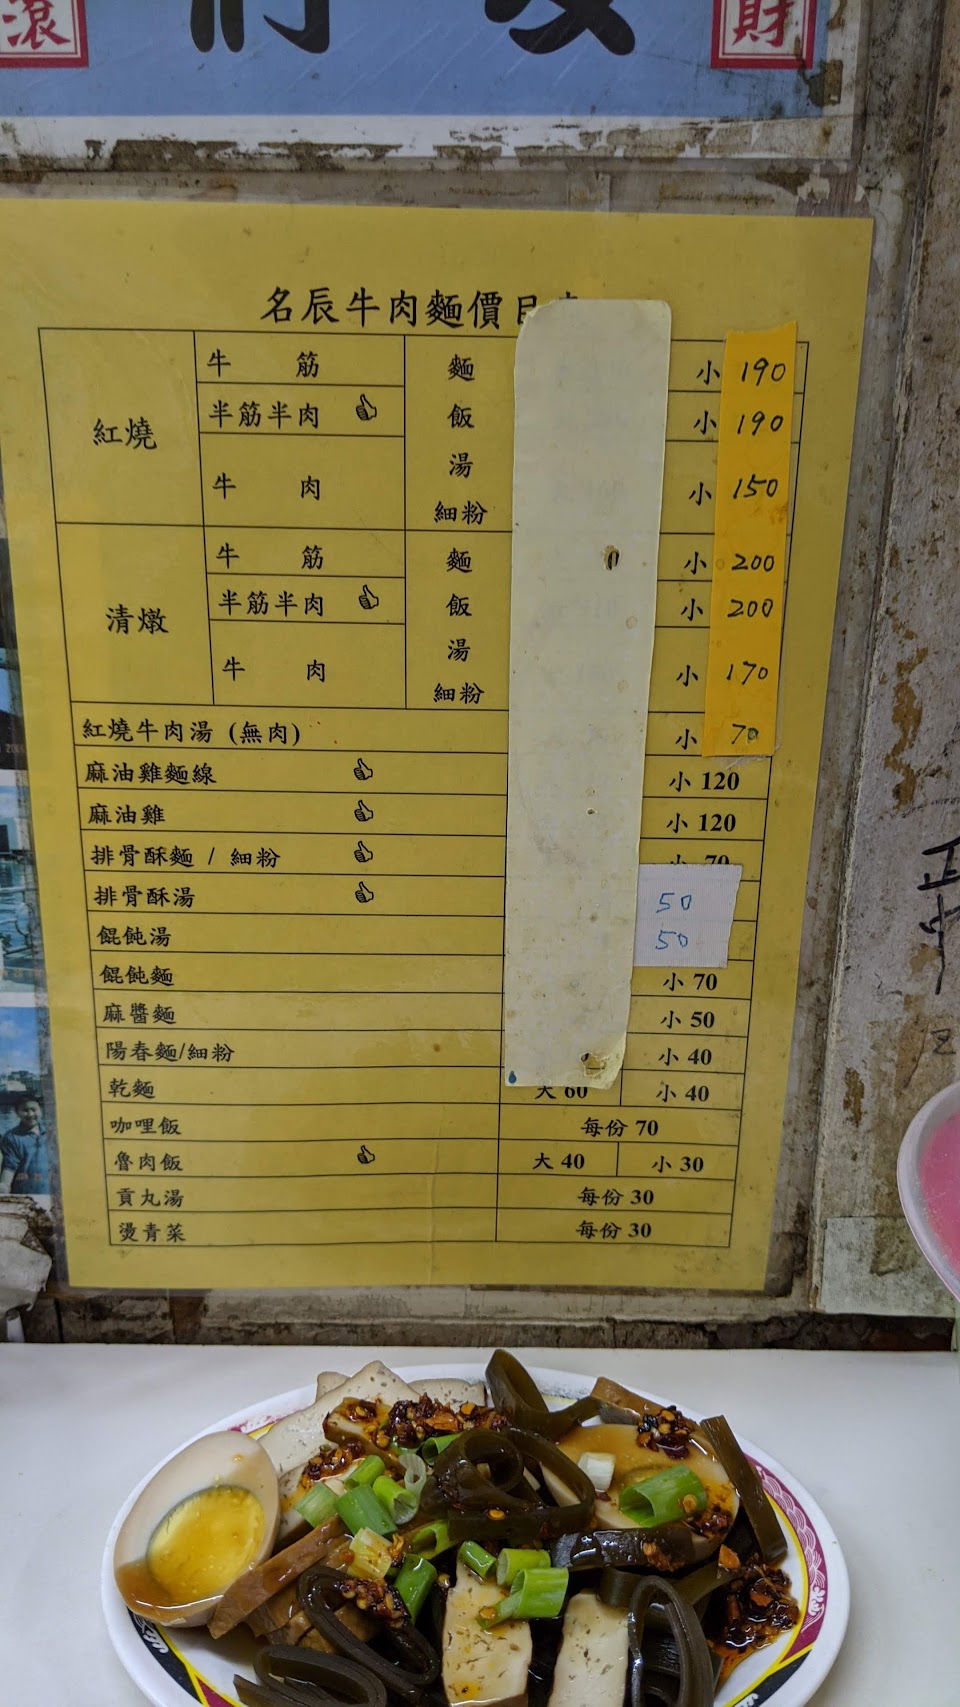 滾 財
名辰牛肉麵價目
紅燒 牛筋 麵 小 190
半筋半肉 飯 小 190
牛肉 湯 小 150
細粉
清燉 牛筋 麵 小 200
半筋半肉 飯 小 200
牛肉 湯 小 170
細粉
紅燒牛肉湯 (無肉) 小 70
麻油雞麵線 小 120
麻油雞 小 120
排骨酥麵 / 細粉 小 70
排骨酥湯 50
餛飩湯 50
餛飩麵 小 70
麻醬麵 小 50
陽春麵/細粉 小 40
乾麵 大 60 小 40
咖哩飯 每份 70
魯肉飯 大 40 小 30
貢丸湯 每份 30
燙青菜 每份 30